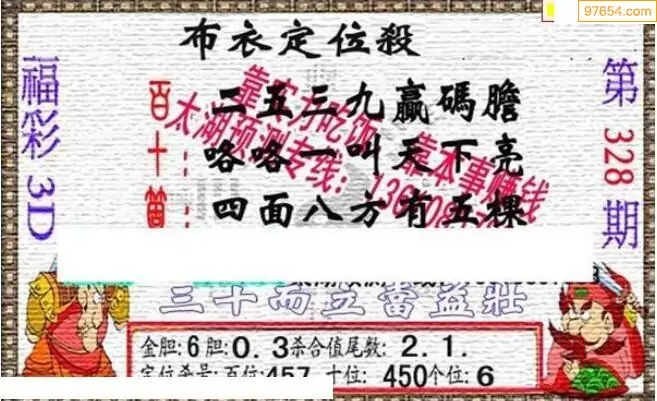 97654.com
布衣定位殺
福彩3D
第328期
百: 二五三九贏碼膽
十: 咯咯一叫天下亮
四面八方有五棵
靠实力吃饭 靠本事赚钱
太湖预测专线:
三十而立當益壯
金胆:6胆:0.3杀合值尾数:2.1.
定位杀号:百位:457 十位:450个位:6